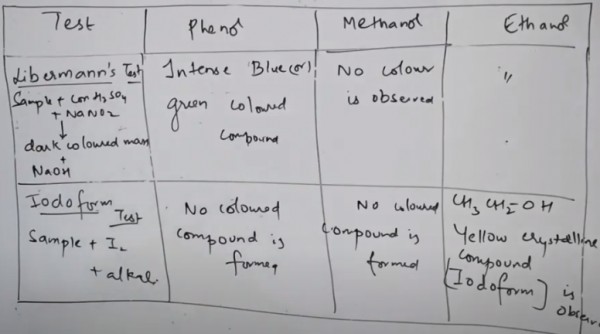 Test
Phenol
Methanol
Ethanol
Libermann's Test
Sample + Con H2SO4
+ NaNO2
↓
dark coloured mass
+
NaOH
Intense Blue (or)
green coloured
compound
No colour
is observed
"
Iodoform
Test
Sample + I2
+ alkali
No coloured
compound is
formed
No coloured
compound is
formed
CH3 CH2-OH
Yellow crystalline
compound
[Iodoform] is
observed